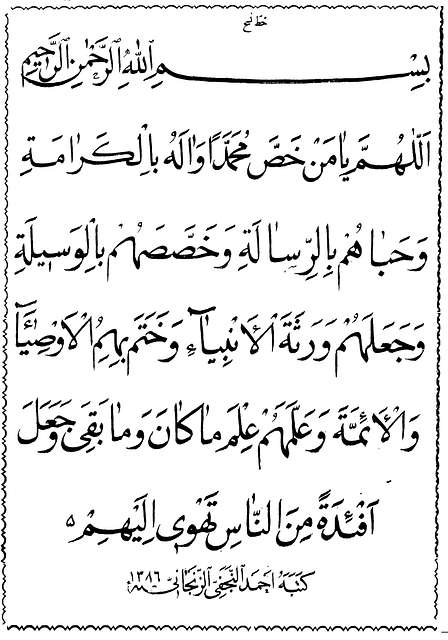 خط نسخ
بِسْمِ اللهِ الرَّحْمٰنِ الرَّحِيمِ
اَللّٰهُمَّ يٰامَنْ خَصَّ مُحَمَّدًا وَاٰلَهُ بِالْكَرٰامَةِ
وَحَبٰاهُمْ بِالرِّسٰالَةِ وَخَصَّصَهُمْ بِالْوَسيلَةِ
وَجَعَلَهُمْ وَرَثَةَ الْاَنْبِيٰاۤءِ وَخَتَمَ بِهِمُ الْاَوْصِيٰاۤءَ
وَالْاَئِمَّةَ وَعَلَّمَهُمْ عِلْمَ مٰاكٰانَ وَمٰابَقِىَ وَجَعَلَ
اَفْئِدَةً مِنَ النّٰاسِ تَهْوى اِلَيْهِمْ ۵
كتبه احمد النجفى الزنجانى سنه ١٣٨٦